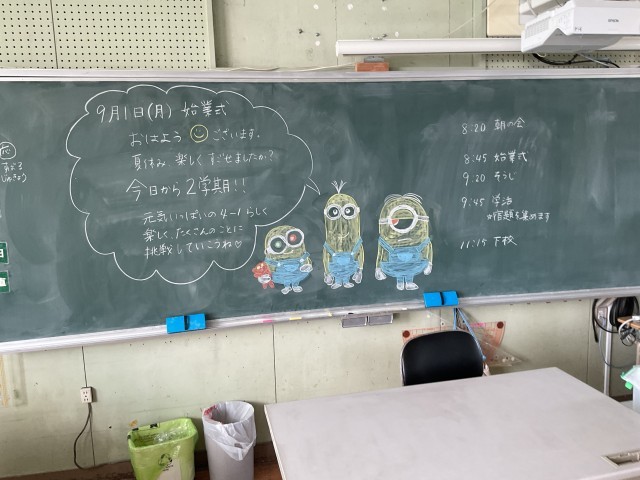 9月1日(月) 始業式
おはよう ございます。
夏休み 楽しく すごせましたか？
今日から2学期！！
元気いっぱいの 4-1 らしく
楽しく、たくさんのことに
挑戦していこうね♡
8:20 朝の会
8:45 始業式
9:20 そうじ
9:45 学活
※宿題を集めます
11:15 下校